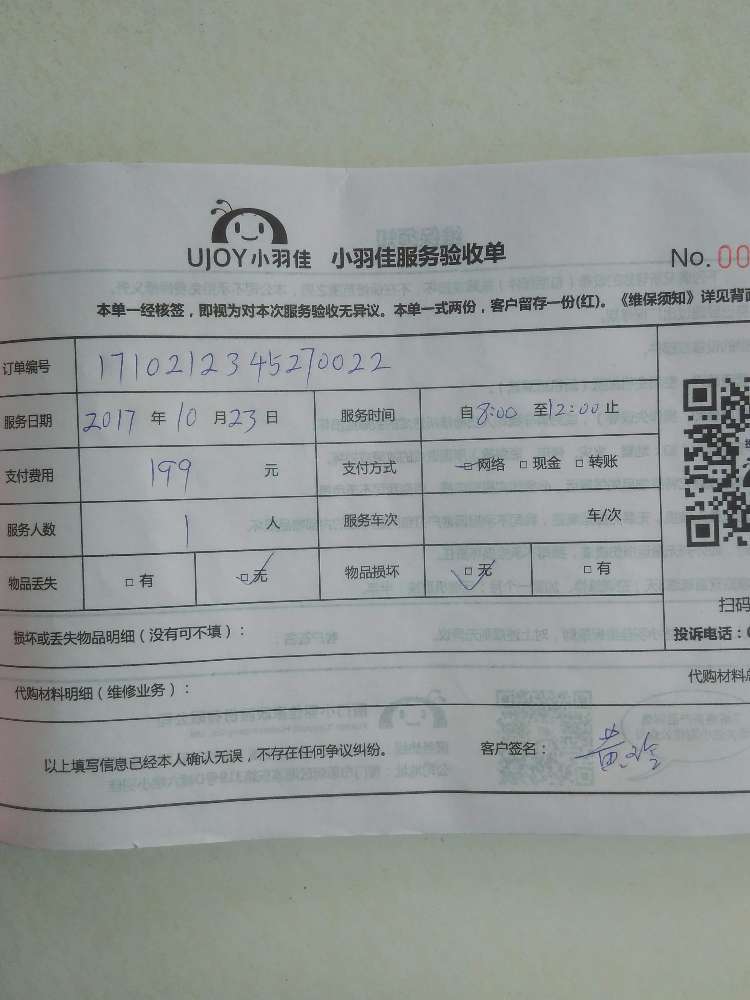 UJOY小羽佳 小羽佳服务验收单 No.00
本单一经核签，即视为对本次服务验收无异议。本单一式两份，客户留存一份(红)。《维保须知》详见背面
订单编号 1710212345270022
服务日期 2017 年 10 月 23 日 服务时间 自 8:00 至 12:00 止
支付费用 199 元 支付方式 □网络 □现金 □转账
服务人数 1 人 服务车次 车/次
物品丢失 □有 □无 物品损坏 □无 □有
扫码
损坏或丢失物品明细（没有可不填）： 投诉电话：
代购材料明细（维修业务）： 代购材料总
以上填写信息已经本人确认无误，不存在任何争议纠纷。 客户签名： 黄